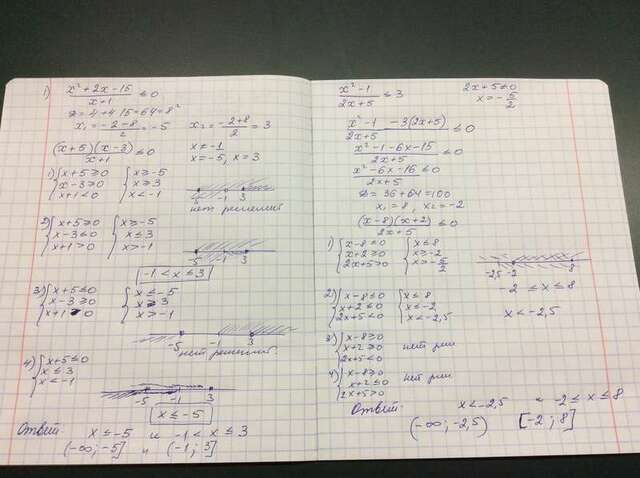 1) (x²+2x-15)/(x+1) ≤0
D=4+4·15=64=8²
x₁=(-2-8)/2=-5 x₂=(-2+8)/2=3
(x+5)(x-3)/(x+1) ≤0 x≠-1
x=-5, x=3
1) { x+5≥0 { x≥-5
x-3≥0 x≥3
x+1<0 x<-1
-5 -1 3
нет решений
2) { x+5≥0 { x≥-5
x-3≤0 x≤3
x+1>0 x>-1
-5 -1 3
-1<x≤3
3) { x+5≤0 { x≤-5
x-3≥0 x≥3
x+1>0 x>-1
-5 -1 3
нет решений.
4) { x+5≤0
x≤3
x<-1
-5 -1 3
x≤-5
Ответ x≤-5 и -1<x≤3
(-∞;-5] и (-1;3]
(x²-1)/(2x+5) ≤3 2x+5≠0
x=-5/2
(x²-1-3(2x+5))/(2x+5) ≤0
(x²-1-6x-15)/(2x+5) ≤0
(x²-6x-16)/(2x+5) ≤0
D=36+64=100
x₁=8, x₂=-2
(x-8)(x+2)/(2x+5) ≤0
1) { x-8≤0 { x≤8
x+2≥0 x≥-2
2x+5>0 x>-5/2
-2,5 -2 8
-2≤x≤8
2) { x-8≤0 { x≤8
x+2≤0 x≤-2
2x+5<0 x<-2,5
x<-2,5
3) { x-8≥0
x+2≥0 нет реш
2x+5<0
4) { x-8≥0
x+2≤0 нет реш
2x+5>0
Ответ: x<-2,5 и -2≤x≤8
(-∞;-2,5) [-2;8]